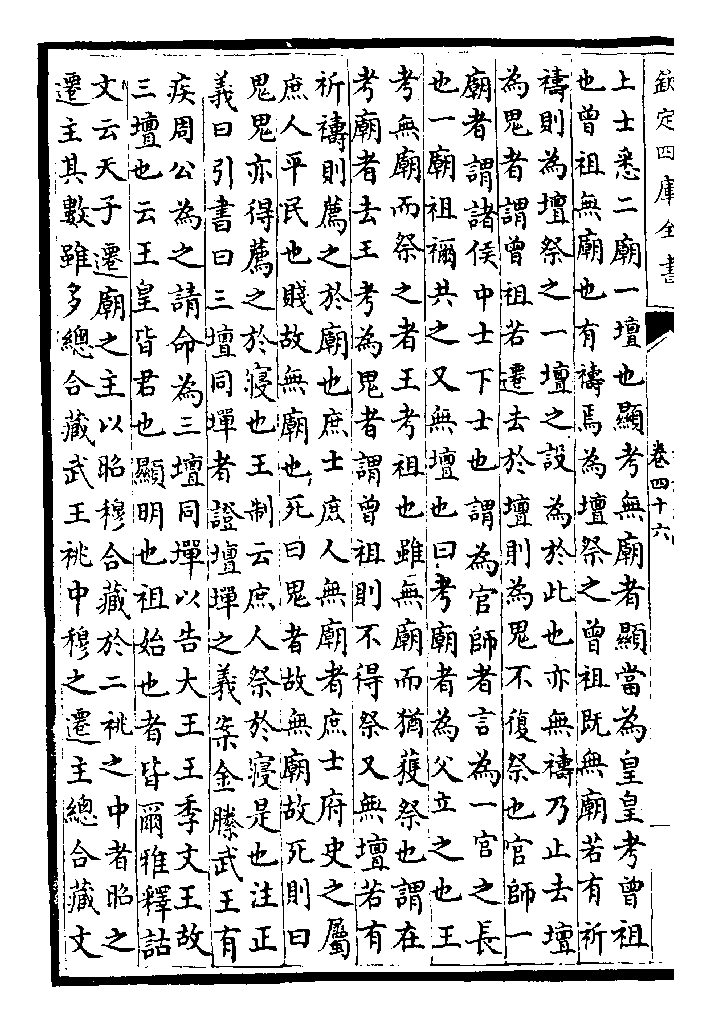 欽定四庫全書
卷四十六
上士悉二廟一壇也顯考無廟者顯當為皇皇考曾祖
也曾祖無廟也有禱焉為壇祭之曾祖既無廟若有祈
禱則為壇祭之一壇之設為於此也亦無禱乃止去壇
為鬼者謂曾祖若遷去於壇則為鬼不復祭也官師一
廟者謂諸侯中士下士也謂為官師者言為一官之長
也一廟祖禰共之又無壇也曰考廟者為父立之也王
考無廟而祭之者王考祖也雖無廟而猶獲祭也謂在
考廟者去王考為鬼者謂曾祖則不得祭又無壇若有
祈禱則薦之於廟也庶士庶人無廟者庶士府史之屬
庶人平民也賤故無廟也死曰鬼者故無廟故死則曰
鬼鬼亦得薦之於寢也王制云庶人祭於寢是也注正
義曰引書曰三壇同墠者證壇墠之義案金縢武王有
疾周公為之請命為三壇同墠以告大王王季文王故
三壇也云王皇皆君也顯明也祖始也者皆爾雅釋詁
文云天子遷廟之主以昭穆合藏於二祧之中者昭之
遷主其數雖多總合藏武王祧中穆之遷主總合藏文